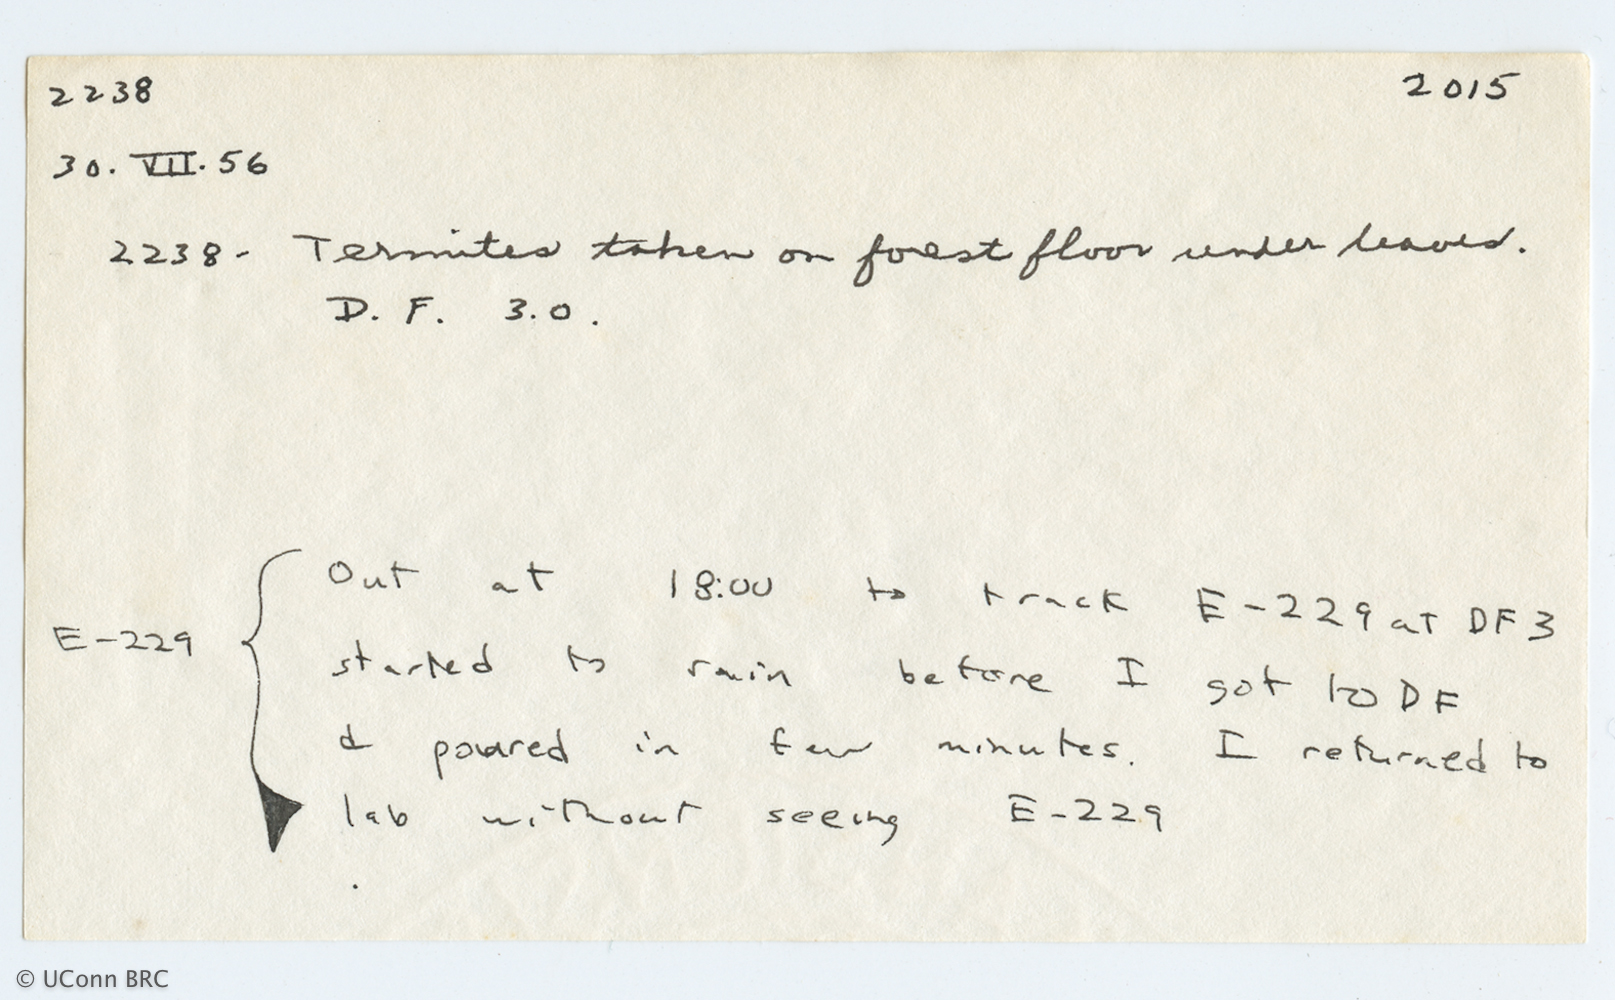 2238 2015
30. VII. 56
2238- Termites taken on forest floor under leaves.
D. F. 3.0.
Out at 18:00 to track E-229 at DF 3
E-229
started to rain before I got to DF
& poured in few minutes. I returned to
lab without seeing E-229
© UConn BRC